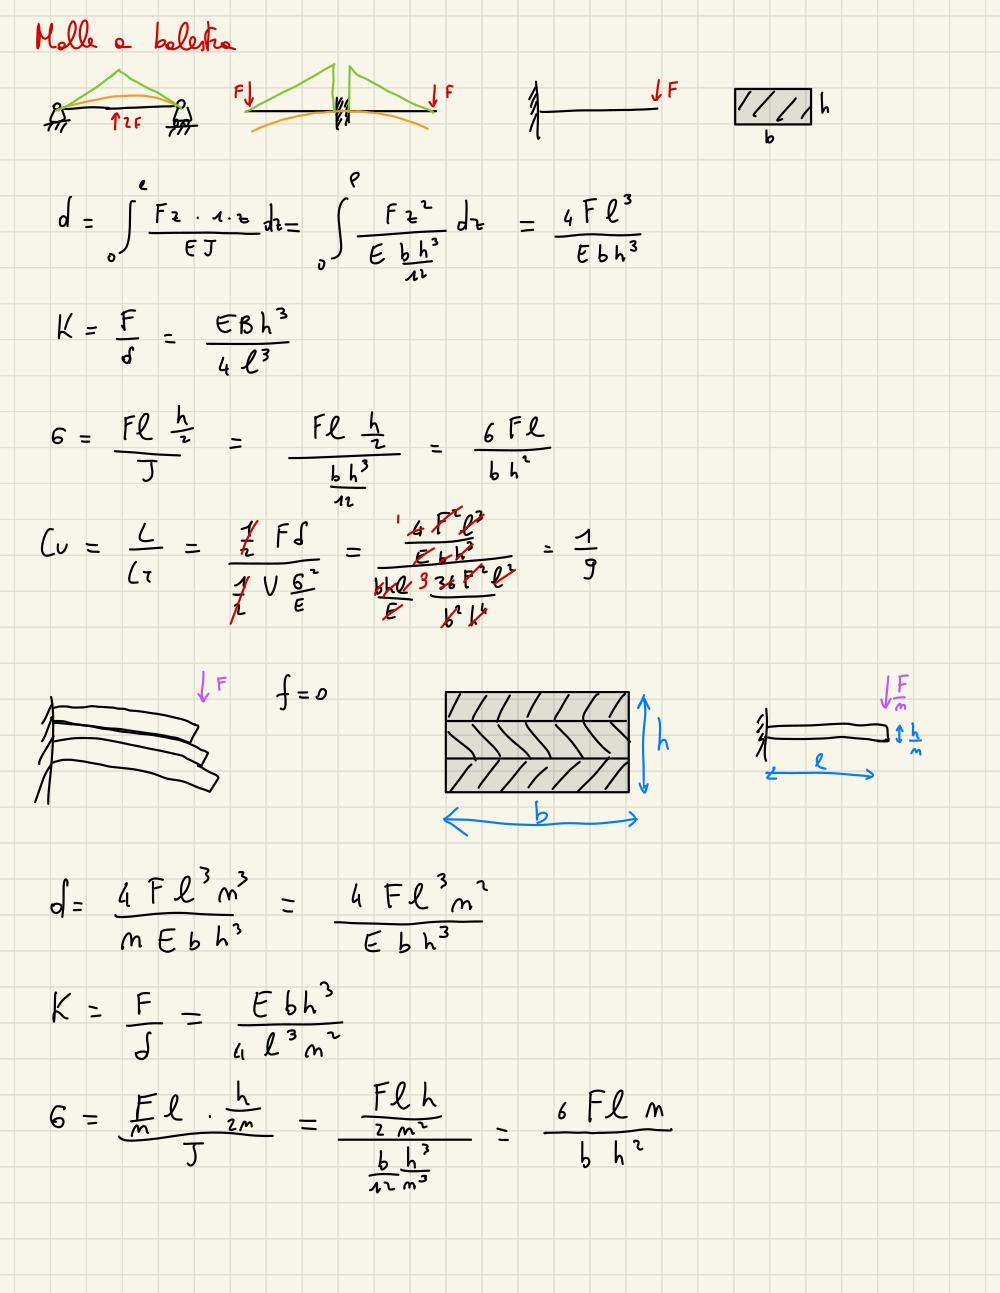 Molle a balestra
2F F F F h
b
d = ∫₀^l (Fz · 1 · z)/(EJ) dz = ∫₀^l (Fz²)/(E (bh³)/12) dz = (4Fl³)/(Ebh³)
K = F/d = (EBh³)/(4l³)
σ = (Fl h/2)/J = (Fl h/2)/((bh³)/12) = (6Fl)/(bh²)
Cu = L/Lτ = (1/2 Fd)/(1/2 V σ²/E) = ((4F²l³)/(Ebh³))/((bhl)/E (36F²l²)/(b²h⁴)) = 1/9
1
3
F f=0 F/m
h h/m
l
b
d = (4Fl³m³)/(mEbh³) = (4Fl³m²)/(Ebh³)
K = F/d = (Ebh³)/(4l³m²)
σ = (F/m l · h/2m)/J = ((Flh)/(2m²))/(b/12 h³/m³) = (6Flm)/(bh²)